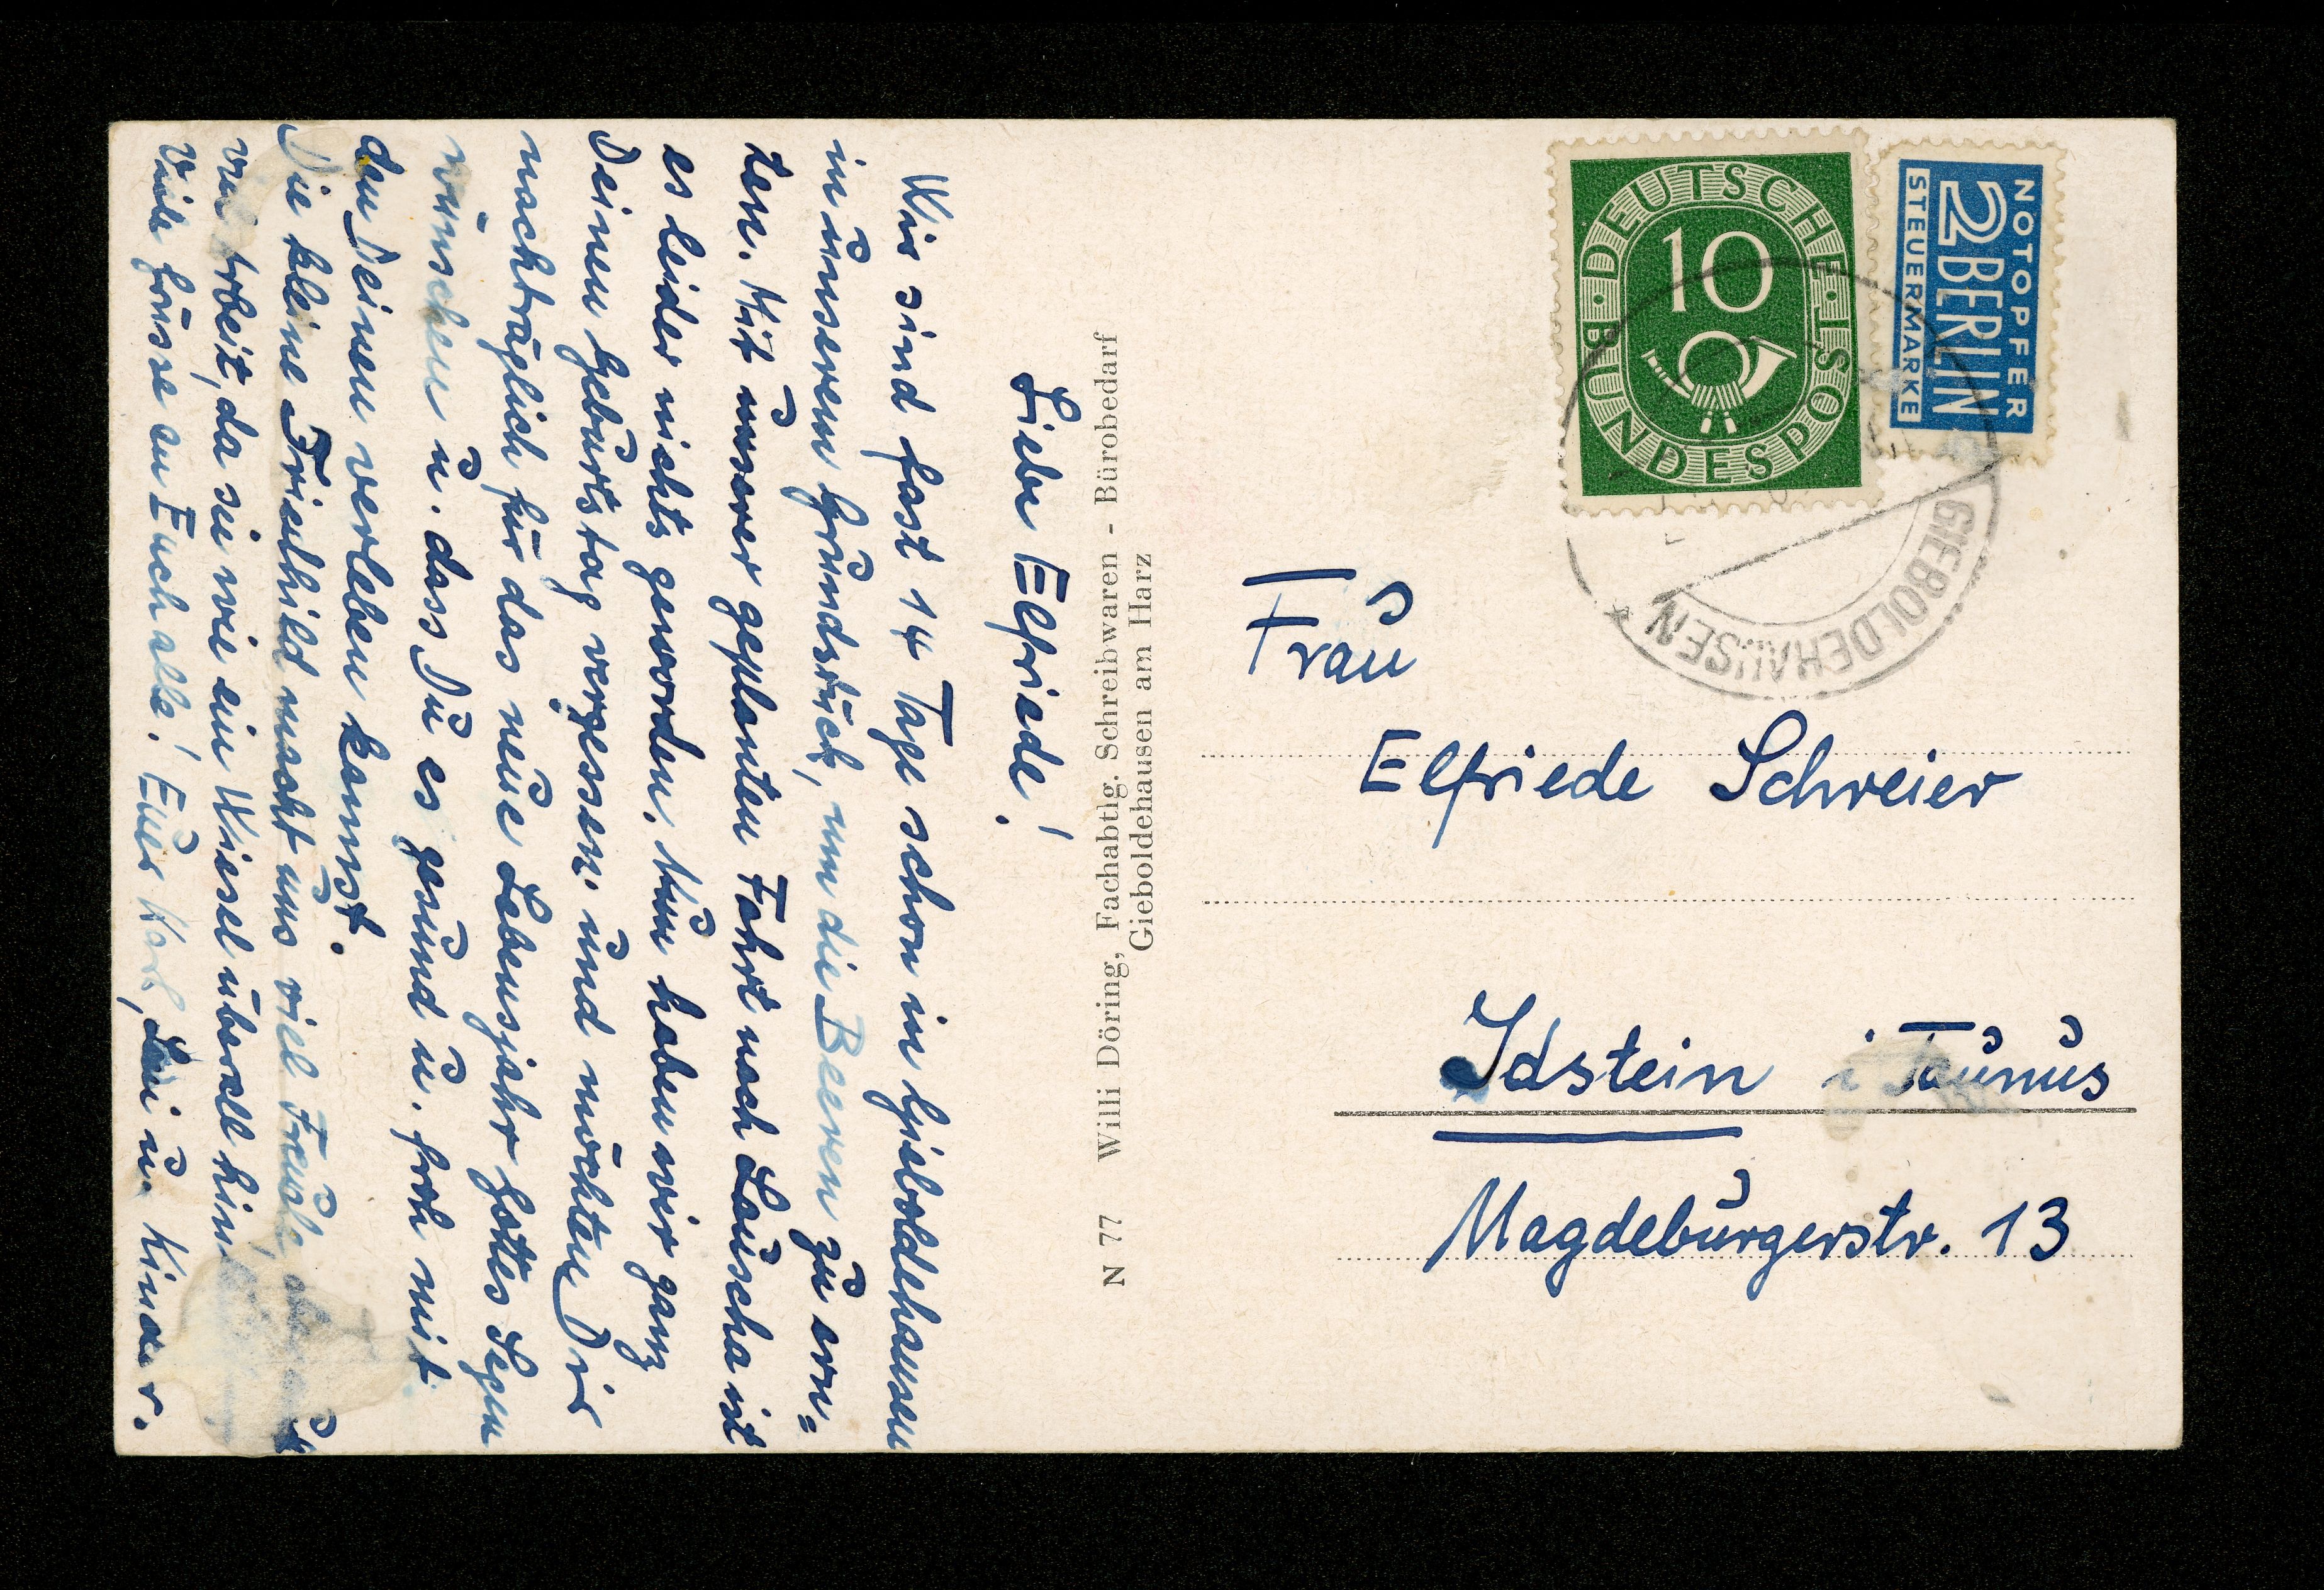 Liebe Elfriede!
Wir sind fast 14 Tage schon in Gieboldehausen
in unserem Grundstück, um die Beeren zu ern=
ten. Mit unserer geplanten Fahrt nach Lauscha ist
es leider nichts geworden. Nun haben wir ganz
Deinen Geburtstag vergessen und möchten Dir
nachträglich für das neue Lebensjahr Gottes Segen
wünschen u. dass Du es gesund u. froh mit
den Deinen verleben kannst.
Die kleine Frienhild macht uns viel Freude,
viel Arbeit, da sie wie ein Wiesel überall hin
Viele Grüsse an Euch alle! Euer Karl, u. Kinder.
N 77 Willi Döring, Fachabtlg. Schreibwaren - Bürobedarf
Gieboldehausen am Harz
DEUTSCHE · POST · BUNDESPOST
10
NOTOPFER
2 BERLIN
STEUERMARKE
GIEBOLDEHAUSEN
Frau
Elfriede Schreier
Idstein i Taunus
Magdeburgerstr. 13